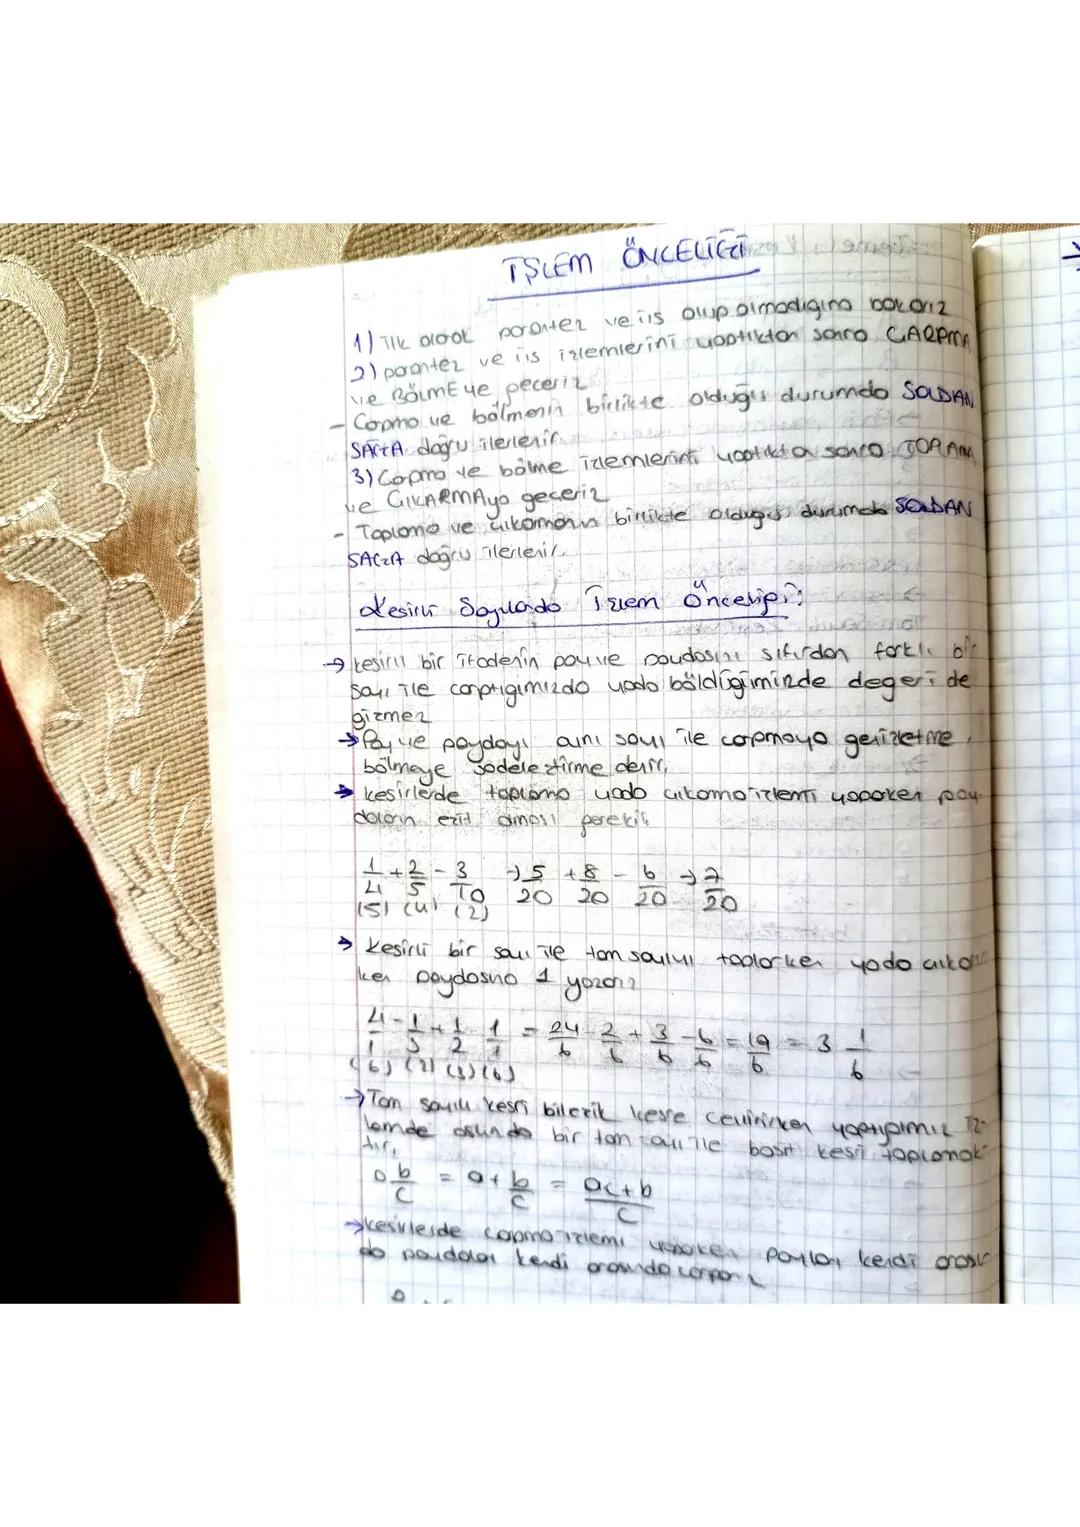 İŞLEM ÖNCELİĞİ
1) İlk olarak parantez ve üs olup olmadığına bakarız
2) parantez ve üs işlemlerini yaptıktan sonra ÇARPMA
ve BÖLMEye geçeriz
- Çarpma ve bölmenin birlikte olduğu durumda SOLDAN
SAĞA doğru ilerlenir.
3) Çarpma ve bölme işlemlerini yaptıktan sonra TOPLAMA
ve ÇIKARMAya geçeriz
- Toplama ve çıkarmanın birlikte olduğu durumda SOLDAN
SAĞA doğru ilerlenir.
Kesirli Sayılarda İşlem Önceliği:
→ kesirli bir ifadenin pay ve paydasını sıfırdan farklı bir
sayı ile çarptığımızda yada böldüğümüzde değeri de
ğişmez
→ Pay ve paydayı aynı sayı ile çarpmaya genişletme,
bölmeye sadeleştirme denir.
→ kesirlerde toplama yada çıkarma işlemi yaparken pay-
daların eşit olması gerekir
1/4 + 2/5 - 3/10 → 5/20 + 8/20 - 6/20 → 7/20
(5) (4) (2)
→ Kesirli bir sayı ile tam sayıyı toplarken yada çıkarır
ken paydasına 1 yazarız
4/1 - 1/3 + 1/2 - 1/1 = 24/6 - 2/6 + 3/6 - 6/6 = 19/6 = 3 1/6
(6) (2) (3) (6)
→ Tam sayılı kesri bileşik kesre çevirirken yaptığımız iş-
lemde aslında bir tam sayı ile basit kesri toplamak
tır.
a b/c = a + b/c = ac+b/c
→ kesirlerde çarpma işlemi yaparken paylar kendi arasın
da paydalar kendi arasında çarparız